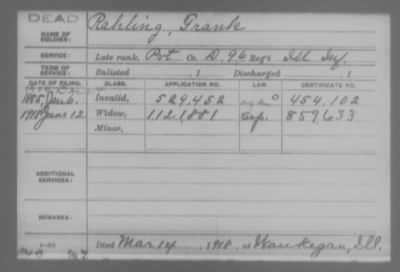 DEAD
NAME OF SOLDIER: Rahling, Frank
SERVICE: Late rank, Pvt Co. D, 96 Reg't Ill Inf.
TERM OF SERVICE: Enlisted , 1 Discharged , 1
DATE OF FILING. CLASS. APPLICATION NO. LAW. CERTIFICATE NO.
1885, Jan 6. Invalid, 529,452 454,102
1918 June 12 Widow, 1,121,881 859,633
Minor,
ADDITIONAL SERVICES:
REMARKS:
Died Mar 14, 1918, at Waukegan, Ill.